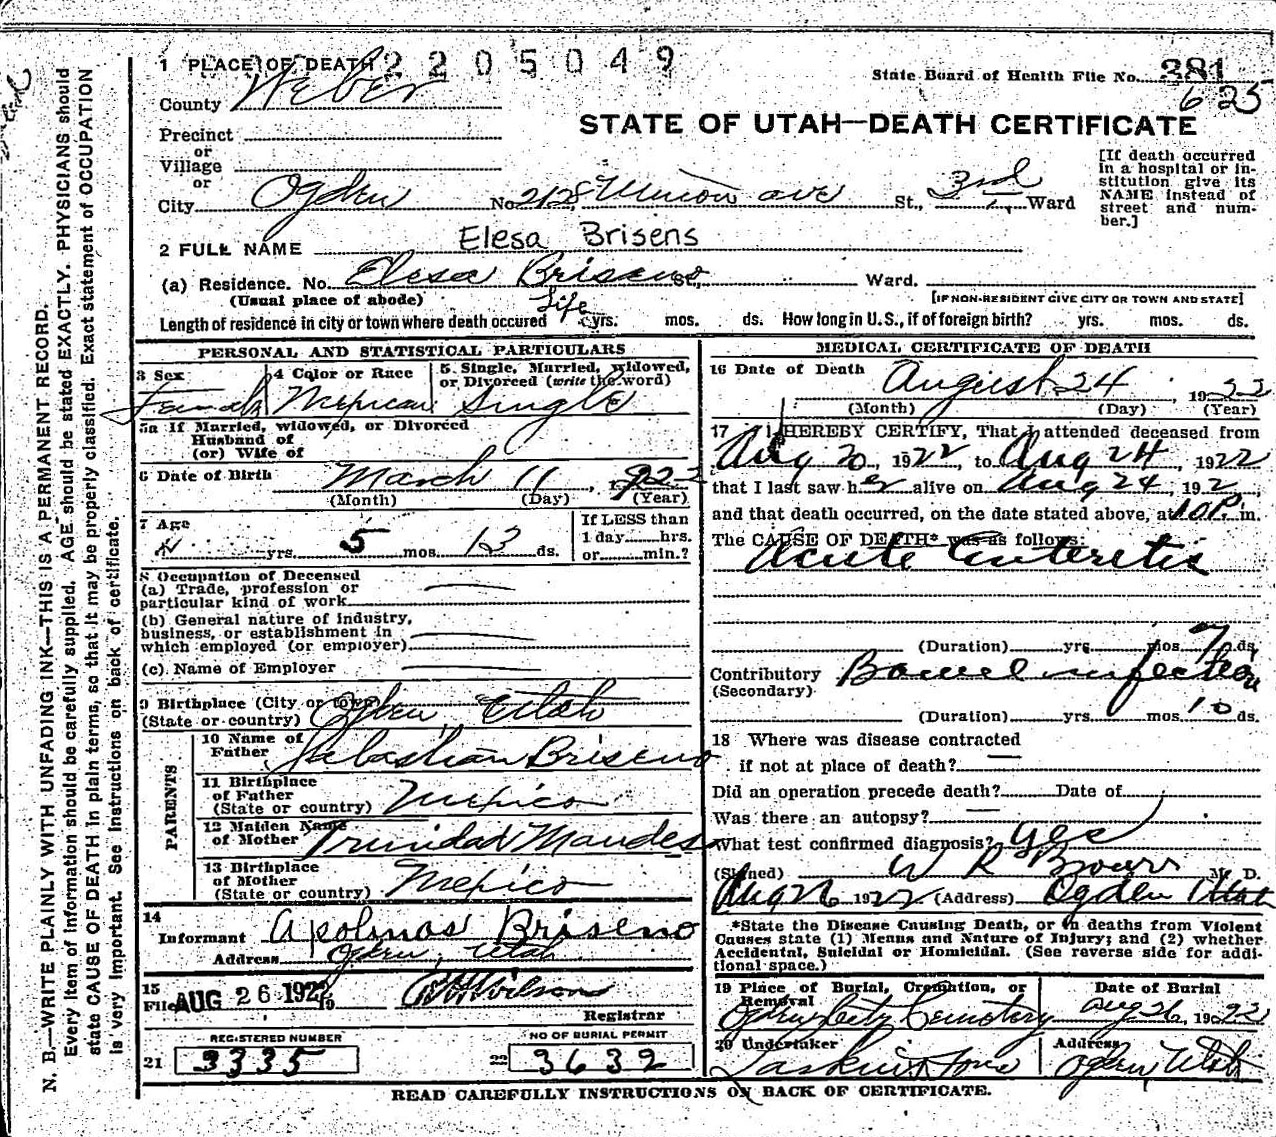 1 PLACE OF DEATH 2205049
State Board of Health File No. 381
625
County Weber
STATE OF UTAH—DEATH CERTIFICATE
Precinct
or
Village
or
City Ogden No. 2128 Union ave St., 3rd Ward
[If death occurred in a hospital or institution give its NAME instead of street and number.]
2 FULL NAME Elesa Brisens
(a) Residence. No. Elesa Briseno St., Ward.
(Usual place of abode) [IF NON-RESIDENT GIVE CITY OR TOWN AND STATE]
Length of residence in city or town where death occured Life yrs. mos. ds. How long in U.S., if of foreign birth? yrs. mos. ds.
PERSONAL AND STATISTICAL PARTICULARS
3 Sex Female
4 Color or Race Mexican
5. Single, Married, Widowed, or Divorced (write the word) Single
5a If Married, widowed, or Divorced
Husband of
(or) Wife of
6 Date of Birth March 11, 1922
(Month) (Day) (Year)
7 Age
yrs. 5 mos. 13 ds.
If LESS than
1 day hrs.
or min.?
8 Occupation of Deceased
(a) Trade, profession or
particular kind of work
(b) General nature of industry,
business, or establishment in
which employed (or employer)
(c) Name of Employer
9 Birthplace (City or town)
(State or country) Ogden, Utah
PARENTS
10 Name of
Father Sebastian Briseno
11 Birthplace
of Father
(State or country) Mexico
12 Maiden Name
of Mother Trinidad Mandes
13 Birthplace
of Mother
(State or country) Mexico
14
Informant Apolinas Briseno
Address Ogden, Utah
15
Filed AUG 26 1922
Wilson
Registrar
REGISTERED NUMBER
21 3335
NO OF BURIAL PERMIT
22 3632
MEDICAL CERTIFICATE OF DEATH
16 Date of Death August 24, 1922
(Month) (Day) (Year)
17 I HEREBY CERTIFY, That I attended deceased from
Aug 20, 1922, to Aug 24, 1922
that I last saw her alive on Aug 24, 192
and that death occurred, on the date stated above, at 10P. m.
The CAUSE OF DEATH* was as follows:
Acute Enteretis
(Duration) yrs. mos. 7 ds.
Contributory Bowel infection
(Secondary)
(Duration) yrs. mos. 10 ds.
18 Where was disease contracted
if not at place of death?
Did an operation precede death? Date of
Was there an autopsy?
What test confirmed diagnosis? yes
(Signed) W R Bowers M. D.
Aug 26 1922 (Address) Ogden Utah
*State the Disease Causing Death, or in deaths from Violent
Causes state (1) Menus and Nature of Injury; and (2) whether
Accidental, Suicidal or Homicidal. (See reverse side for addi-
tional space.)
19 Place of Burial, Cremation, or
Removal
Ogden City Cemetery
Date of Burial
Aug 26, 1922
20 Undertaker
Larkin & Sons
Address
Ogden, Utah
READ CAREFULLY INSTRUCTIONS ON BACK OF CERTIFICATE.
N. B.—WRITE PLAINLY WITH UNFADING INK—THIS IS A PERMANENT RECORD.
Every item of information should be carefully supplied. AGE should be stated EXACTLY. PHYSICIANS should
state CAUSE OF DEATH in plain terms, so that it may be properly classified. Exact statement of OCCUPATION
is very important. See instructions on back of certificate.